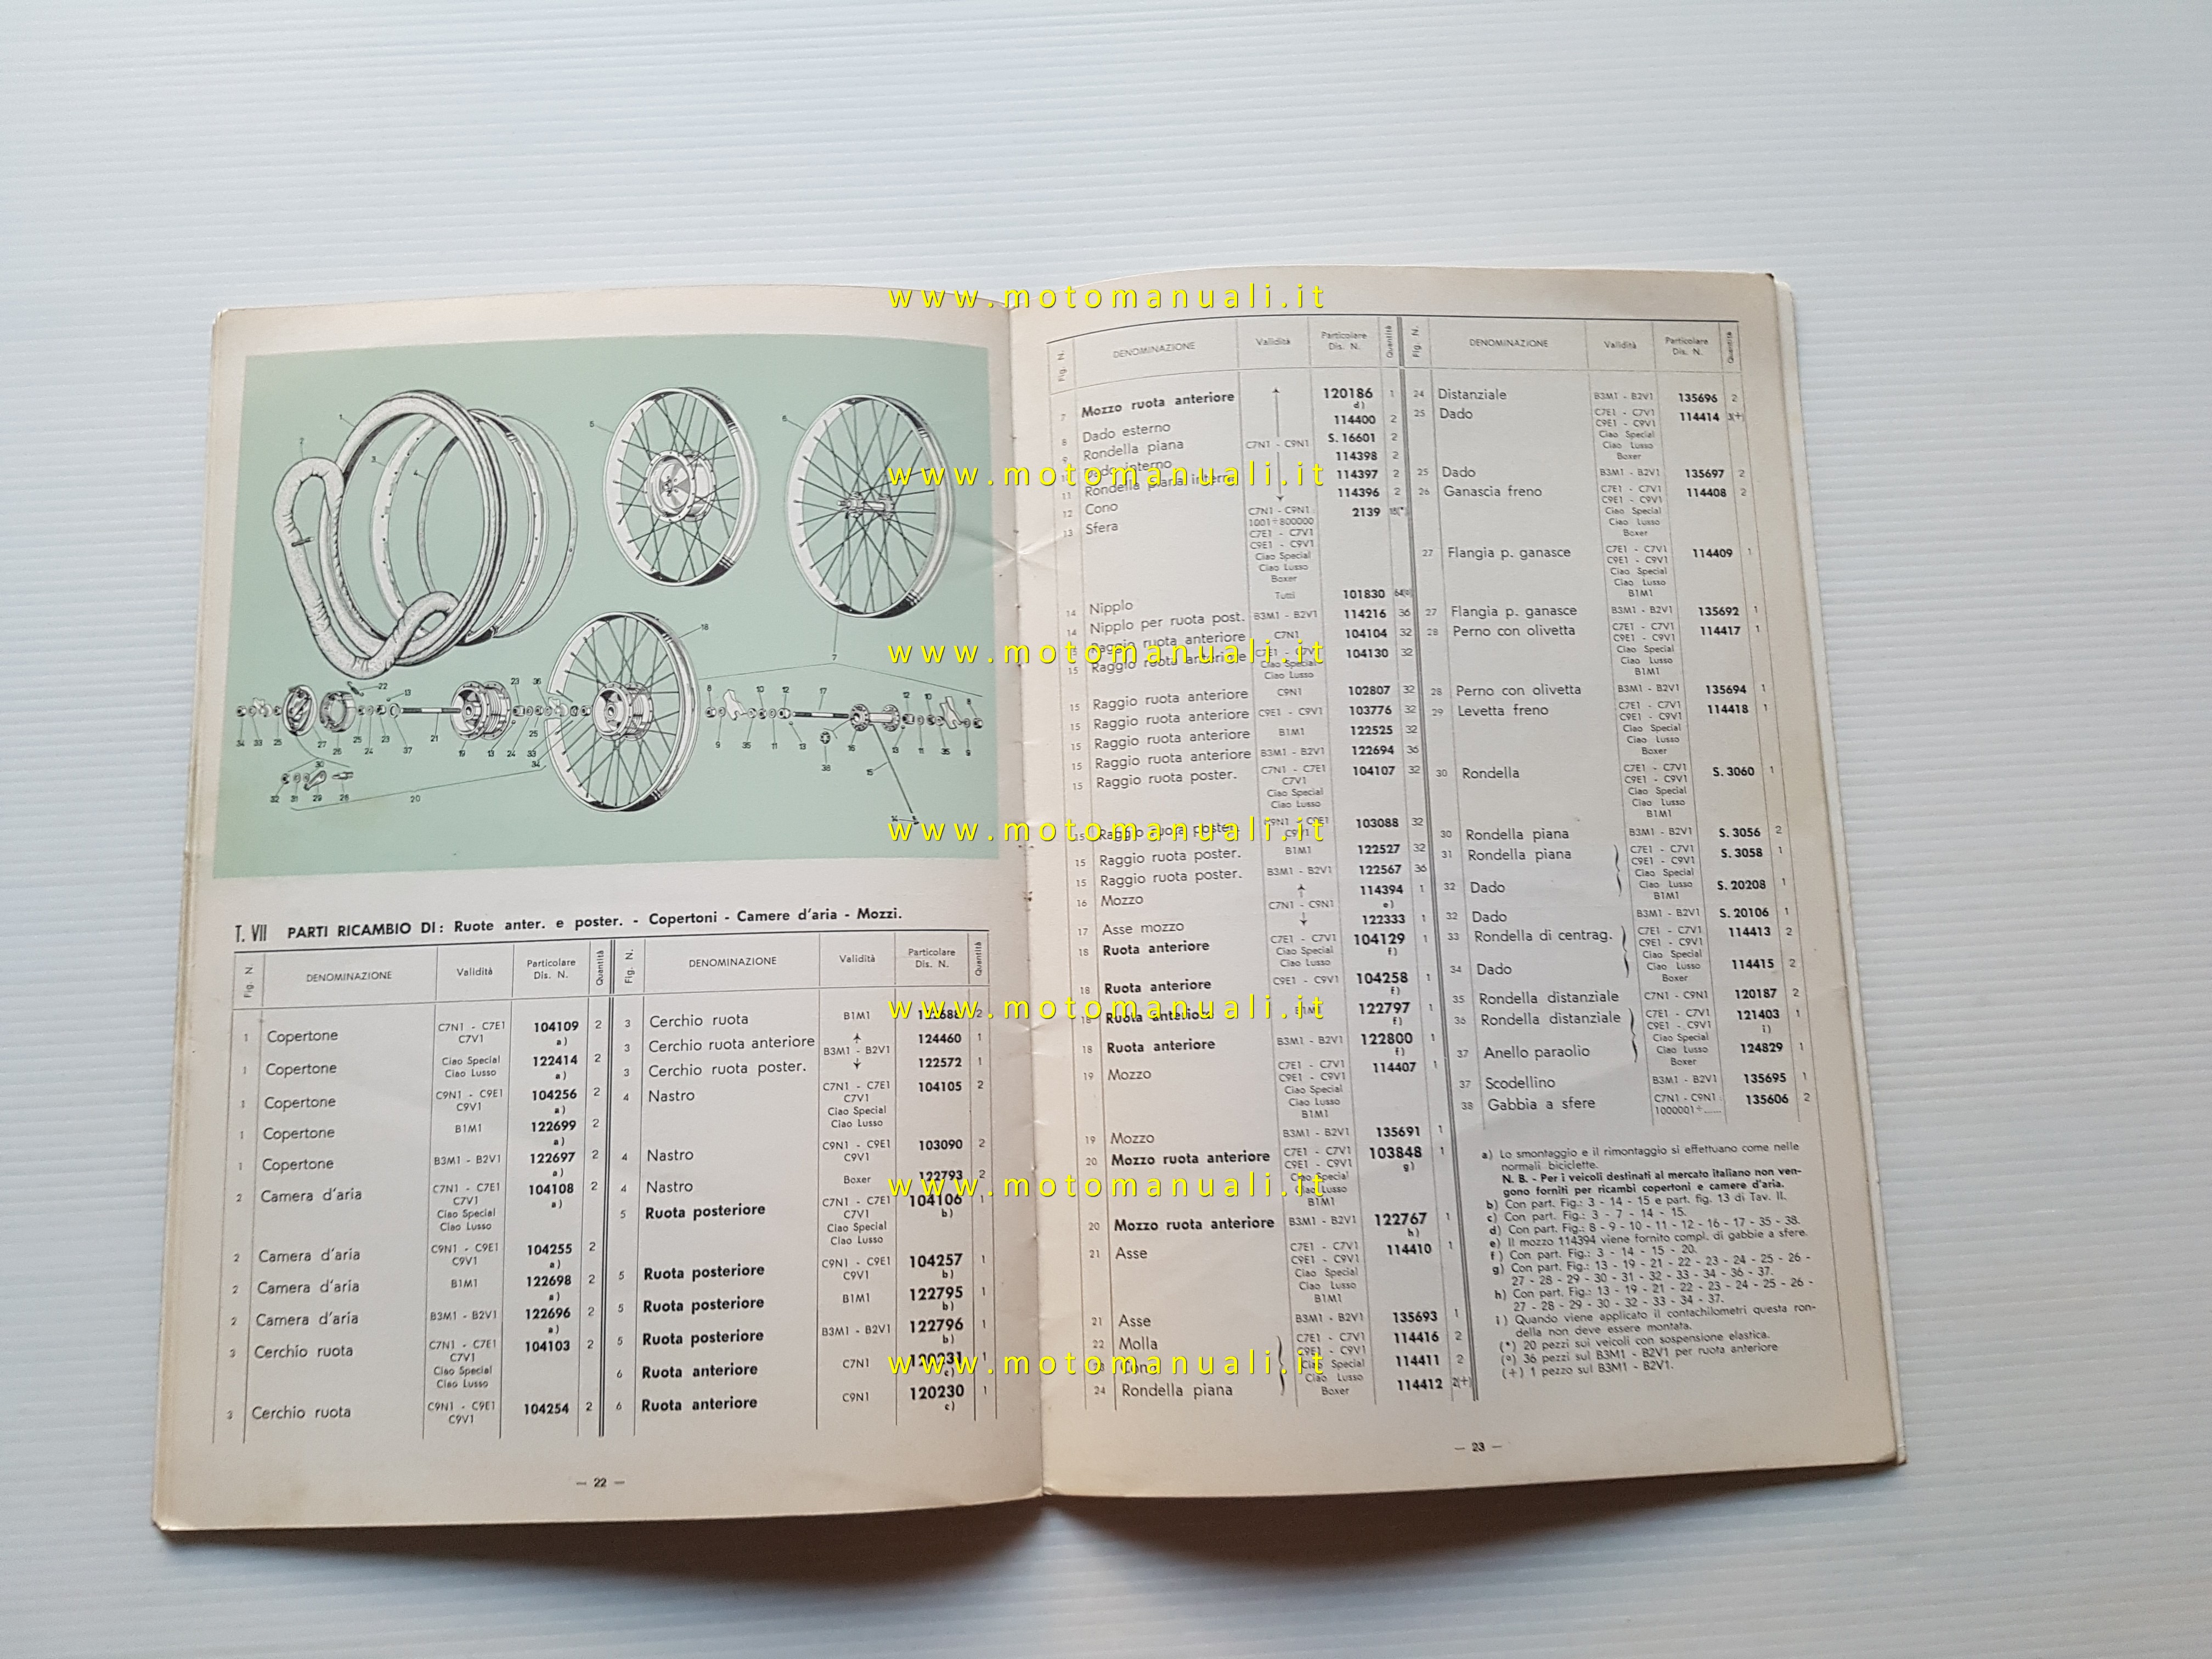 T. VII PARTI RICAMBIO DI: Ruote anter. e poster. - Copertoni - Camere d'aria - Mozzi.
Fig. N. DENOMINAZIONE Validità Particolare Dis. N. Quantità
1 Copertone C7N1 - C7E1 C7V1 104109 a) 2
1 Copertone Ciao Special Ciao Lusso 122414 a) 2
1 Copertone C9N1 - C9E1 C9V1 104256 a) 2
1 Copertone B1M1 122699 a) 2
1 Copertone B3M1 - B2V1 122697 a) 2
2 Camera d'aria C7N1 - C7E1 C7V1 Ciao Special Ciao Lusso 104108 a) 2
2 Camera d'aria C9N1 - C9E1 C9V1 104255 a) 2
2 Camera d'aria B1M1 122698 a) 2
2 Camera d'aria B3M1 - B2V1 122696 a) 2
3 Cerchio ruota C7N1 - C7E1 C7V1 Ciao Special Ciao Lusso 104103 2
3 Cerchio ruota C9N1 - C9E1 C9V1 104254 2
Fig. N. DENOMINAZIONE Validità Particolare Dis. N. Quantità
3 Cerchio ruota B1M1 122688 2
3 Cerchio ruota anteriore B3M1 - B2V1 124460 1
3 Cerchio ruota poster. 122572 1
4 Nastro C7N1 - C7E1 C7V1 Ciao Special Ciao Lusso 104105 2
4 Nastro C9N1 - C9E1 C9V1 103090 2
4 Nastro Boxer 122793 2
5 Ruota posteriore C7N1 - C7E1 C7V1 Ciao Special Ciao Lusso 104106 b) 1
5 Ruota posteriore C9N1 - C9E1 C9V1 104257 b) 1
5 Ruota posteriore B1M1 122795 b) 1
5 Ruota posteriore B3M1 - B2V1 122796 b) 1
6 Ruota anteriore C7N1 120231 c) 1
6 Ruota anteriore C9N1 120230 c) 1
— 22 —
Fig. N. DENOMINAZIONE Validità Particolare Dis. N. Quantità
7 Mozzo ruota anteriore 120186 d) 1
8 Dado esterno 114400 2
9 Rondella piana C7N1 - C9N1 S. 16601 2
Dado interno 114398 2
11 Rondella piana intern. 114397 2
12 Cono 114396 2
13 Sfera C7N1 - C9N1 1001÷800000 C7E1 - C7V1 C9E1 - C9V1 Ciao Special Ciao Lusso Boxer 2139 18(*)
14 Nipplo Tutti 101830 64(o)
14 Nipplo per ruota post. B3M1 - B2V1 114216 36
Raggio ruota anteriore C7N1 104104 32
15 Raggio ruota anteriore C7E1 - C7V1 Ciao Special Ciao Lusso 104130 32
15 Raggio ruota anteriore C9N1 102807 32
15 Raggio ruota anteriore C9E1 - C9V1 103776 32
15 Raggio ruota anteriore B1M1 122525 32
15 Raggio ruota anteriore B3M1 - B2V1 122694 36
15 Raggio ruota poster. C7N1 - C7E1 C7V1 Ciao Special Ciao Lusso 104107 32
15 Raggio ruota poster. C9N1 - C9E1 C9V1 103088 32
15 Raggio ruota poster. B1M1 122527 32
15 Raggio ruota poster. B3M1 - B2V1 122567 36
16 Mozzo C7N1 - C9N1 114394 e) 1
17 Asse mozzo 122333 1
18 Ruota anteriore C7E1 - C7V1 Ciao Special Ciao Lusso 104129 f) 1
18 Ruota anteriore C9E1 - C9V1 104258 f) 1
18 Ruota anteriore B1M1 122797 f) 1
18 Ruota anteriore B3M1 - B2V1 122800 f) 1
19 Mozzo C7E1 - C7V1 C9E1 - C9V1 Ciao Special Ciao Lusso B1M1 114407 1
19 Mozzo B3M1 - B2V1 135691 1
20 Mozzo ruota anteriore C7E1 - C7V1 C9E1 - C9V1 Ciao Special Ciao Lusso B1M1 103848 g) 1
20 Mozzo ruota anteriore B3M1 - B2V1 122767 h) 1
21 Asse C7E1 - C7V1 C9E1 - C9V1 Ciao Special Ciao Lusso B1M1 114410 1
21 Asse B3M1 - B2V1 135693 1
22 Molla C7E1 - C7V1 C9E1 - C9V1 114416 2
23 Cono Ciao Special Ciao Lusso 114411 2
24 Rondella piana Boxer 114412 2(+)
Fig. N. DENOMINAZIONE Validità Particolare Dis. N. Quantità
24 Distanziale B3M1 - B2V1 135696 2
25 Dado C7E1 - C7V1 C9E1 - C9V1 Ciao Special Ciao Lusso Boxer 114414 3(+)
25 Dado B3M1 - B2V1 135697 2
26 Ganascia freno C7E1 - C7V1 C9E1 - C9V1 Ciao Special Ciao Lusso Boxer 114408 2
27 Flangia p. ganasce C7E1 - C7V1 C9E1 - C9V1 Ciao Special Ciao Lusso B1M1 114409 1
27 Flangia p. ganasce B3M1 - B2V1 135692 1
28 Perno con olivetta C7E1 - C7V1 C9E1 - C9V1 Ciao Special Ciao Lusso B1M1 114417 1
28 Perno con olivetta B3M1 - B2V1 135694 1
29 Levetta freno C7E1 - C7V1 C9E1 - C9V1 Ciao Special Ciao Lusso Boxer 114418 1
30 Rondella C7E1 - C7V1 C9E1 - C9V1 Ciao Special Ciao Lusso B1M1 S. 3060 1
30 Rondella piana B3M1 - B2V1 S. 3056 2
31 Rondella piana C7E1 - C7V1 C9E1 - C9V1 Ciao Special S. 3058 1
32 Dado Ciao Lusso B1M1 S. 20208 1
32 Dado B3M1 - B2V1 S. 20106 1
33 Rondella di centrag. C7E1 - C7V1 C9E1 - C9V1 Ciao Special 114413 2
34 Dado Ciao Lusso Boxer 114415 2
35 Rondella distanziale C7N1 - C9N1 120187 2
36 Rondella distanziale C7E1 - C7V1 C9E1 - C9V1 121403 i) 1
37 Anello paraolio Ciao Special Ciao Lusso Boxer 124829 1
37 Scodellino B3M1 - B2V1 135695 1
38 Gabbia a sfere C7N1 - C9N1 1000001÷...... 135606 2
a) Lo smontaggio e il rimontaggio si effettuano come nelle
normali biciclette.
N. B. - Per i veicoli destinati al mercato italiano non ven-
gono forniti per ricambi copertoni e camere d'aria.
b) Con part. Fig.: 3 - 14 - 15 e part. fig. 13 di Tav. II.
c) Con part. Fig.: 3 - 7 - 14 - 15.
d) Con part. Fig.: 8 - 9 - 10 - 11 - 12 - 16 - 17 - 35 - 38.
e) Il mozzo 114394 viene fornito compl. di gabbie a sfere.
f) Con part. Fig.: 3 - 14 - 15 - 20.
g) Con part. Fig.: 13 - 19 - 21 - 22 - 23 - 24 - 25 - 26 -
27 - 28 - 29 - 30 - 31 - 32 - 33 - 34 - 36 - 37.
h) Con part. Fig.: 13 - 19 - 21 - 22 - 23 - 24 - 25 - 26 -
27 - 28 - 29 - 30 - 32 - 33 - 34 - 37.
i) Quando viene applicato il contachilometri questa ron-
della non deve essere montata.
(*) 20 pezzi sui veicoli con sospensione elastica.
(o) 36 pezzi sul B3M1 - B2V1 per ruota anteriore
(+) 1 pezzo sul B3M1 - B2V1.
— 23 —
www.motomanuali.it
www.motomanuali.it
www.motomanuali.it
www.motomanuali.it
www.motomanuali.it
www.motomanuali.it
www.motomanuali.it